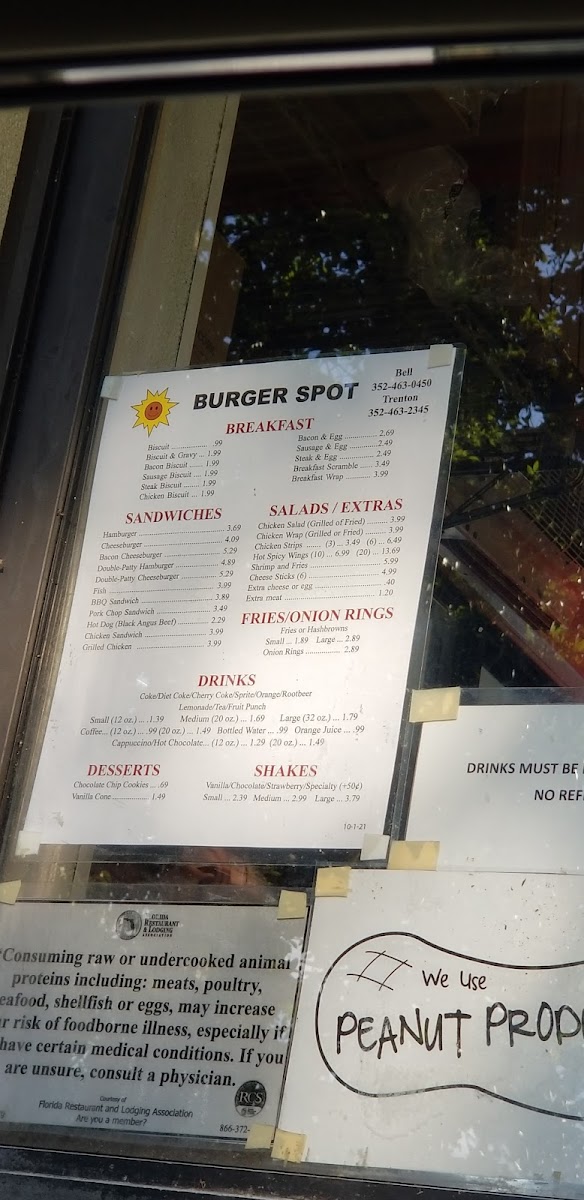 BURGER SPOT
Bell
352-463-0450
Trenton
352-463-2345
BREAKFAST
Biscuit ..................... .99
Biscuit & Gravy ... 1.99
Bacon Biscuit ...... 1.99
Sausage Biscuit .... 1.99
Steak Biscuit ........ 1.99
Chicken Biscuit .... 1.99
Bacon & Egg ............... 2.69
Sausage & Egg ............ 2.49
Steak & Egg ................. 2.49
Breakfast Scramble ...... 3.49
Breakfast Wrap ............ 3.99
SANDWICHES
Hamburger ........................................ 3.69
Cheeseburger .................................... 4.09
Bacon Cheeseburger ......................... 5.29
Double-Patty Hamburger ................... 4.89
Double-Patty Cheeseburger ............... 5.29
Fish .................................................... 3.99
BBQ Sandwich .................................. 3.89
Pork Chop Sandwich ......................... 3.49
Hot Dog (Black Angus Beef) .............. 2.29
Chicken Sandwich ............................. 3.99
Grilled Chicken ................................ 3.99
SALADS / EXTRAS
Chicken Salad (Grilled of Fried) .......... 3.99
Chicken Wrap (Grilled or Fried) ............ 3.99
Chicken Strips ........ (3) ... 3.49 (6) ... 6.49
Hot Spicy Wings (10) ... 6.99 (20) ... 13.69
Shrimp and Fries .................................. 5.99
Cheese Sticks (6) .................................. 4.99
Extra cheese or egg ................................ .40
Extra meat ............................................ 1.20
FRIES/ONION RINGS
Fries or Hashbrowns
Small ... 1.89 Large ... 2.89
Onion Rings ................. 2.89
DRINKS
Coke/Diet Coke/Cherry Coke/Sprite/Orange/Rootbeer
Lemonade/Tea/Fruit Punch
Small (12 oz.) ... .1.39 Medium (20 oz.) ... 1.69 Large (32 oz.) ... 1.79
Coffee... (12 oz.) ... .99 (20 oz.) ... 1.49 Bottled Water ... .99 Orange Juice ... .99
Cappuccino/Hot Chocolate... (12 oz.) ... 1.29 (20 oz.) ... 1.49
DESSERTS
Chocolate Chip Cookies ... .69
Vanilla Cone .................. 1.49
SHAKES
Vanilla/Chocolate/Strawberry/Specialty (+50¢)
Small ... 2.39 Medium ... 2.99 Large ... 3.79
10-1-21
DRINKS MUST BE
NO REF
RESTAURANT
& LODGING
ASSOCIATION
*Consuming raw or undercooked animal
proteins including: meats, poultry,
eafood, shellfish or eggs, may increase
r risk of foodborne illness, especially if
have certain medical conditions. If you
are unsure, consult a physician.
Courtesy of
Florida Restaurant and Lodging Association
Are you a member?
RCS
866-372-
We Use
PEANUT PROD